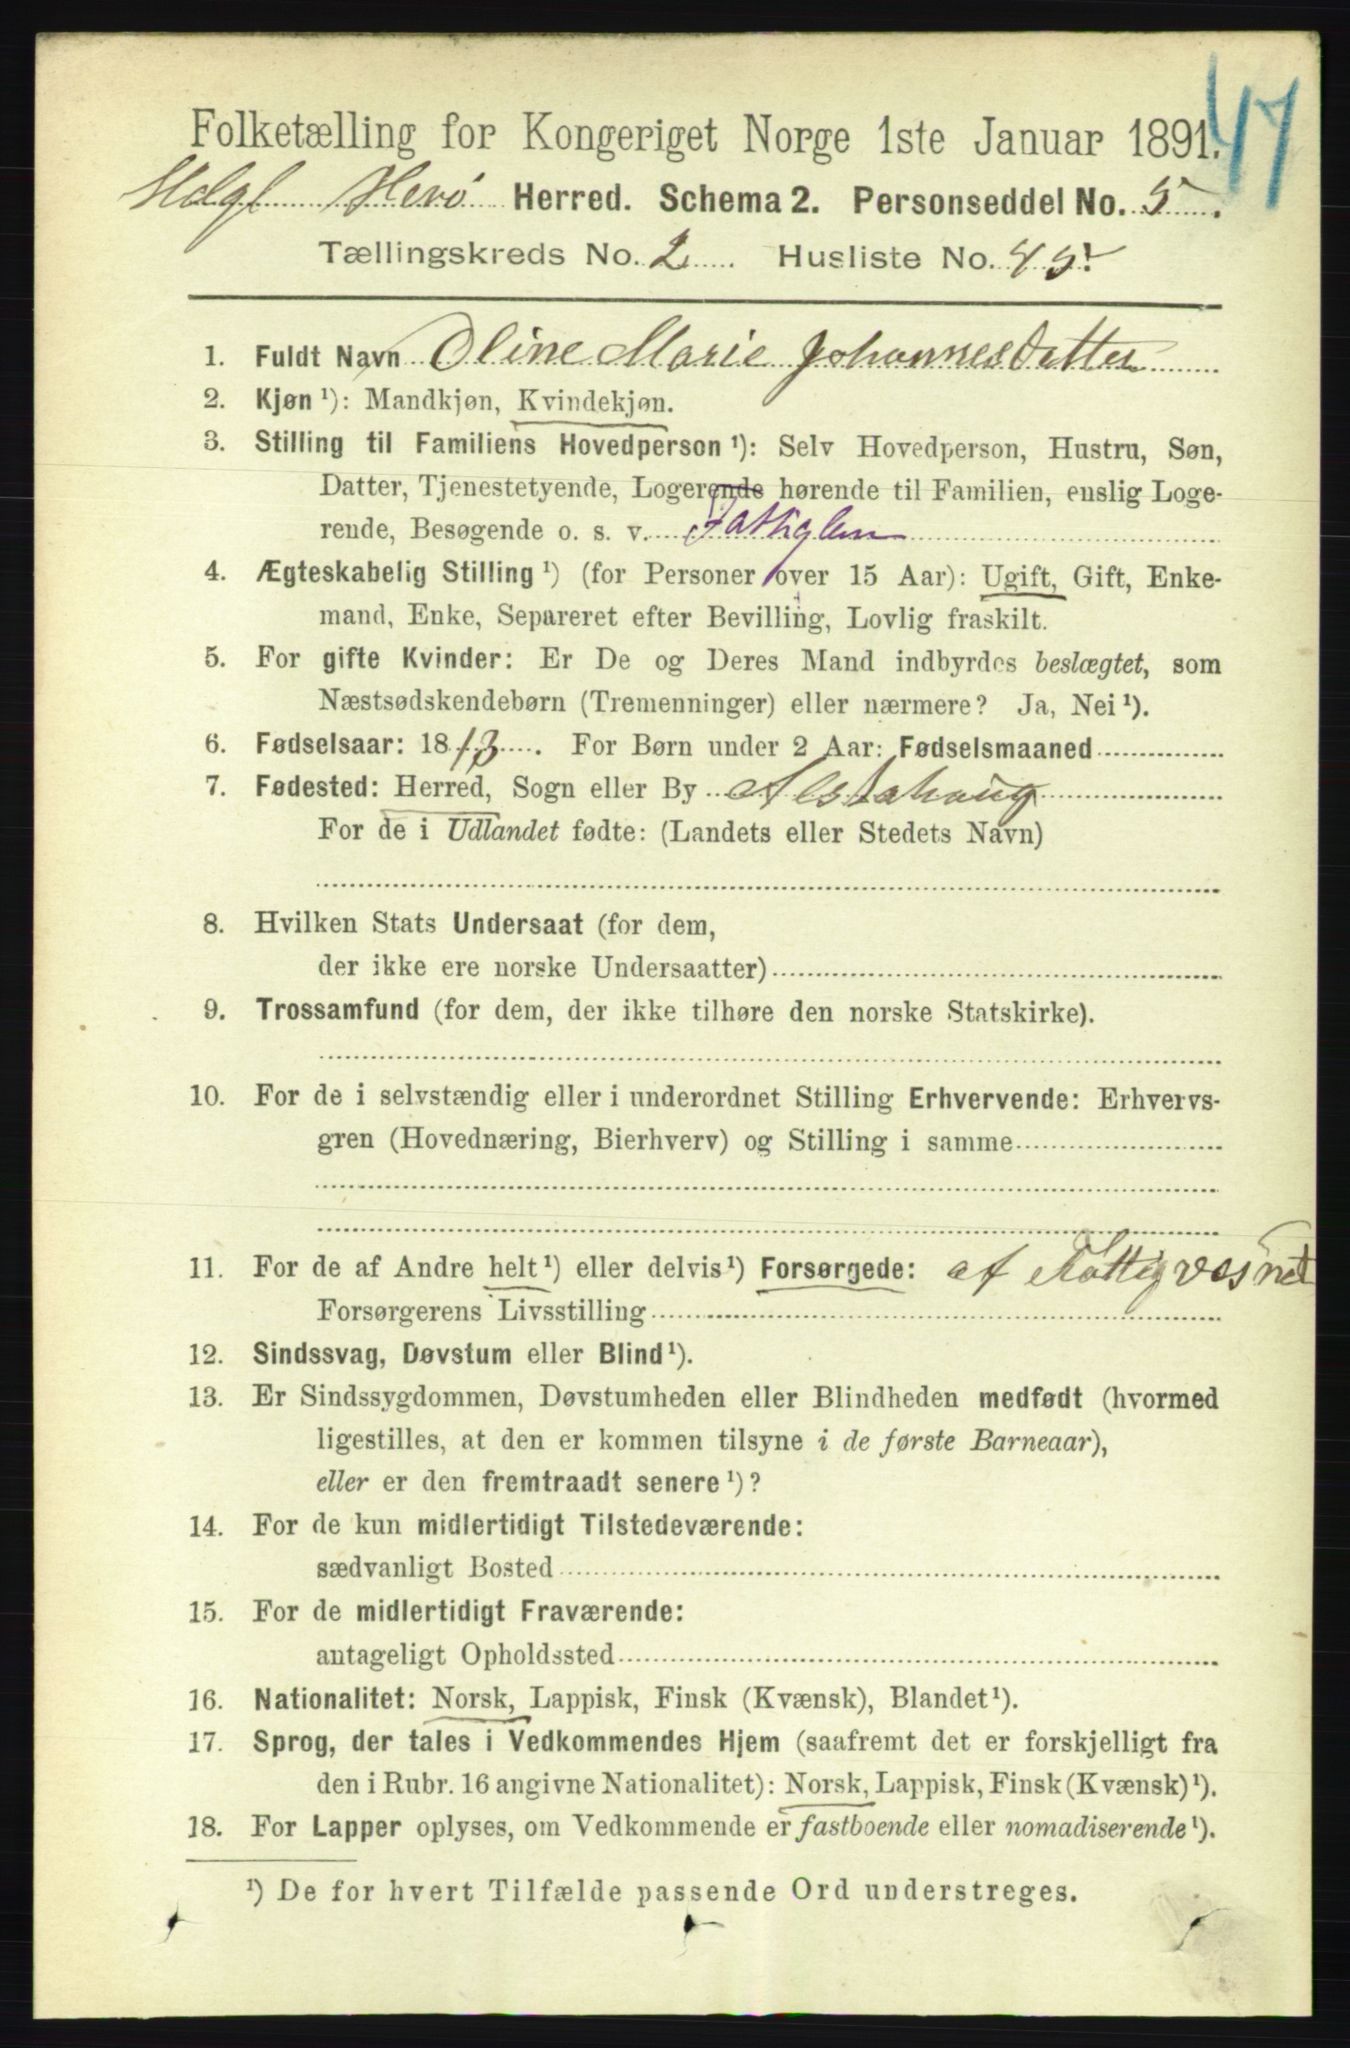 47
Folketælling for Kongeriget Norge 1ste Januar 1891.
Herø Herred. Schema 2. Personseddel No. 5.
Tællingskreds No. 2 Husliste No. 45.
1. Fuldt Navn Oline Marie Johannesdatter
2. Kjøn ¹): Mandkjøn, Kvindekjøn.
3. Stilling til Familiens Hovedperson ¹): Selv Hovedperson, Hustru, Søn,
Datter, Tjenestetyende, Logerende hørende til Familien, enslig Loge-
rende, Besøgende o. s. v. Fattiglem
4. Ægteskabelig Stilling ¹) (for Personer over 15 Aar): Ugift, Gift, Enke-
mand, Enke, Separeret efter Bevilling, Lovlig fraskilt.
5. For gifte Kvinder: Er De og Deres Mand indbyrdes beslægtet, som
Næstsødskendebørn (Tremenninger) eller nærmere? Ja, Nei ¹).
6. Fødselsaar: 1813. For Børn under 2 Aar: Fødselsmaaned
7. Fødested: Herred, Sogn eller By Alstahoug
For de i Udlandet fødte: (Landets eller Stedets Navn)
8. Hvilken Stats Undersaat (for dem,
der ikke ere norske Undersaatter)
9. Trossamfund (for dem, der ikke tilhøre den norske Statskirke).
10. For de i selvstændig eller i underordnet Stilling Erhvervende: Erhvervs-
gren (Hovednæring, Bierhverv) og Stilling i samme
11. For de af Andre helt ¹) eller delvis ¹) Forsørgede: af Fattigvesnet
Forsørgerens Livsstilling
12. Sindssvag, Døvstum eller Blind ¹).
13. Er Sindssygdommen, Døvstumheden eller Blindheden medfødt (hvormed
ligestilles, at den er kommen tilsyne i de første Barneaar),
eller er den fremtraadt senere ¹)?
14. For de kun midlertidigt Tilstedeværende:
sædvanligt Bosted
15. For de midlertidigt Fraværende:
antageligt Opholdssted
16. Nationalitet: Norsk, Lappisk, Finsk (Kvænsk), Blandet ¹).
17. Sprog, der tales i Vedkommendes Hjem (saafremt det er forskjelligt fra
den i Rubr. 16 angivne Nationalitet): Norsk, Lappisk, Finsk (Kvænsk) ¹).
18. For Lapper oplyses, om Vedkommende er fastboende eller nomadiserende ¹).
¹) De for hvert Tilfælde passende Ord understreges.